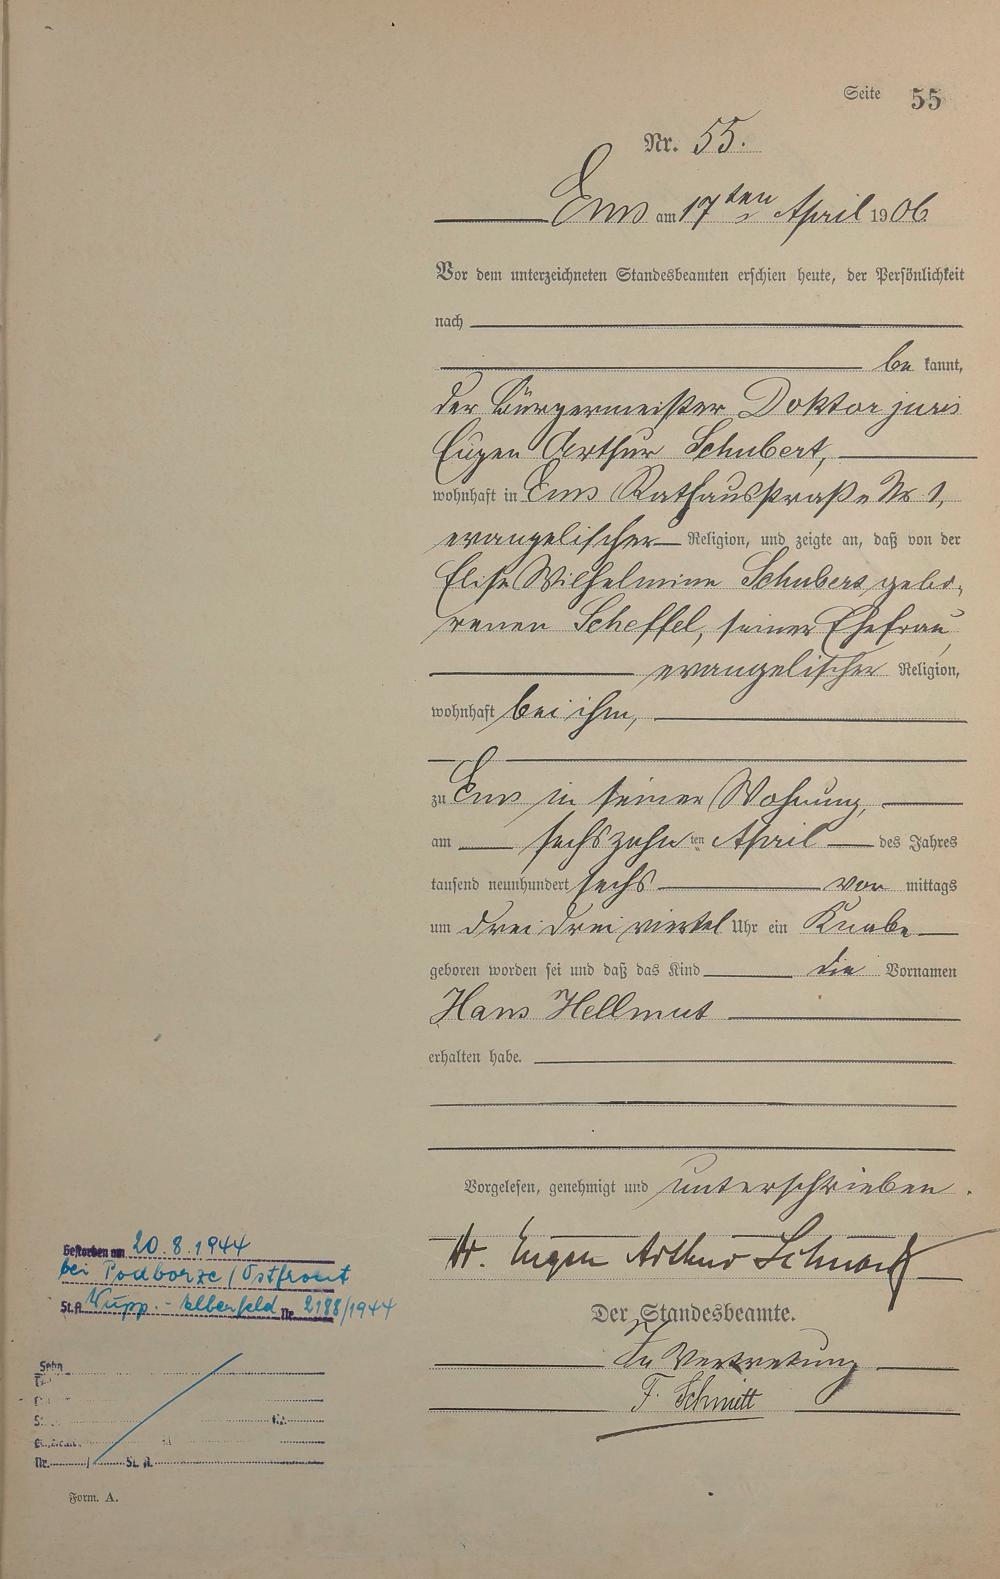 Seite 55
Nr. 55.
Ems am 17ten April 1906
Vor dem unterzeichneten Standesbeamten erschien heute, der Persönlichkeit
nach
be kannt,
der Bürgermeister Doktor juris
Eugen Arthur Schubert,
wohnhaft in Ems Rathausstraße Nr 1,
evangelischer Religion, und zeigte an, daß von der
Elise Wilhelmine Schubert, gebo-
renen Scheffel, seiner Ehefrau,
evangelischer Religion,
wohnhaft bei ihm,
zu Ems in seiner Wohnung,
am sechszehnten April des Jahres
tausend neunhundert sechs vor mittags
um drei drei viertel Uhr ein Knabe
geboren worden sei und daß das Kind die Vornamen
Hans Hellmut
erhalten habe.
Vorgelesen, genehmigt und unterschrieben.
Dr. Eugen Arthur Schubert
Der Standesbeamte.
In Vertretung
F. Schmitt
Gestorben am 20.8.1944
bei Podborze/Ostfront
St.A. Wupp.-Elberfeld Nr. 2188/1944
Sohn
Nr. / St. A.
Form. A.